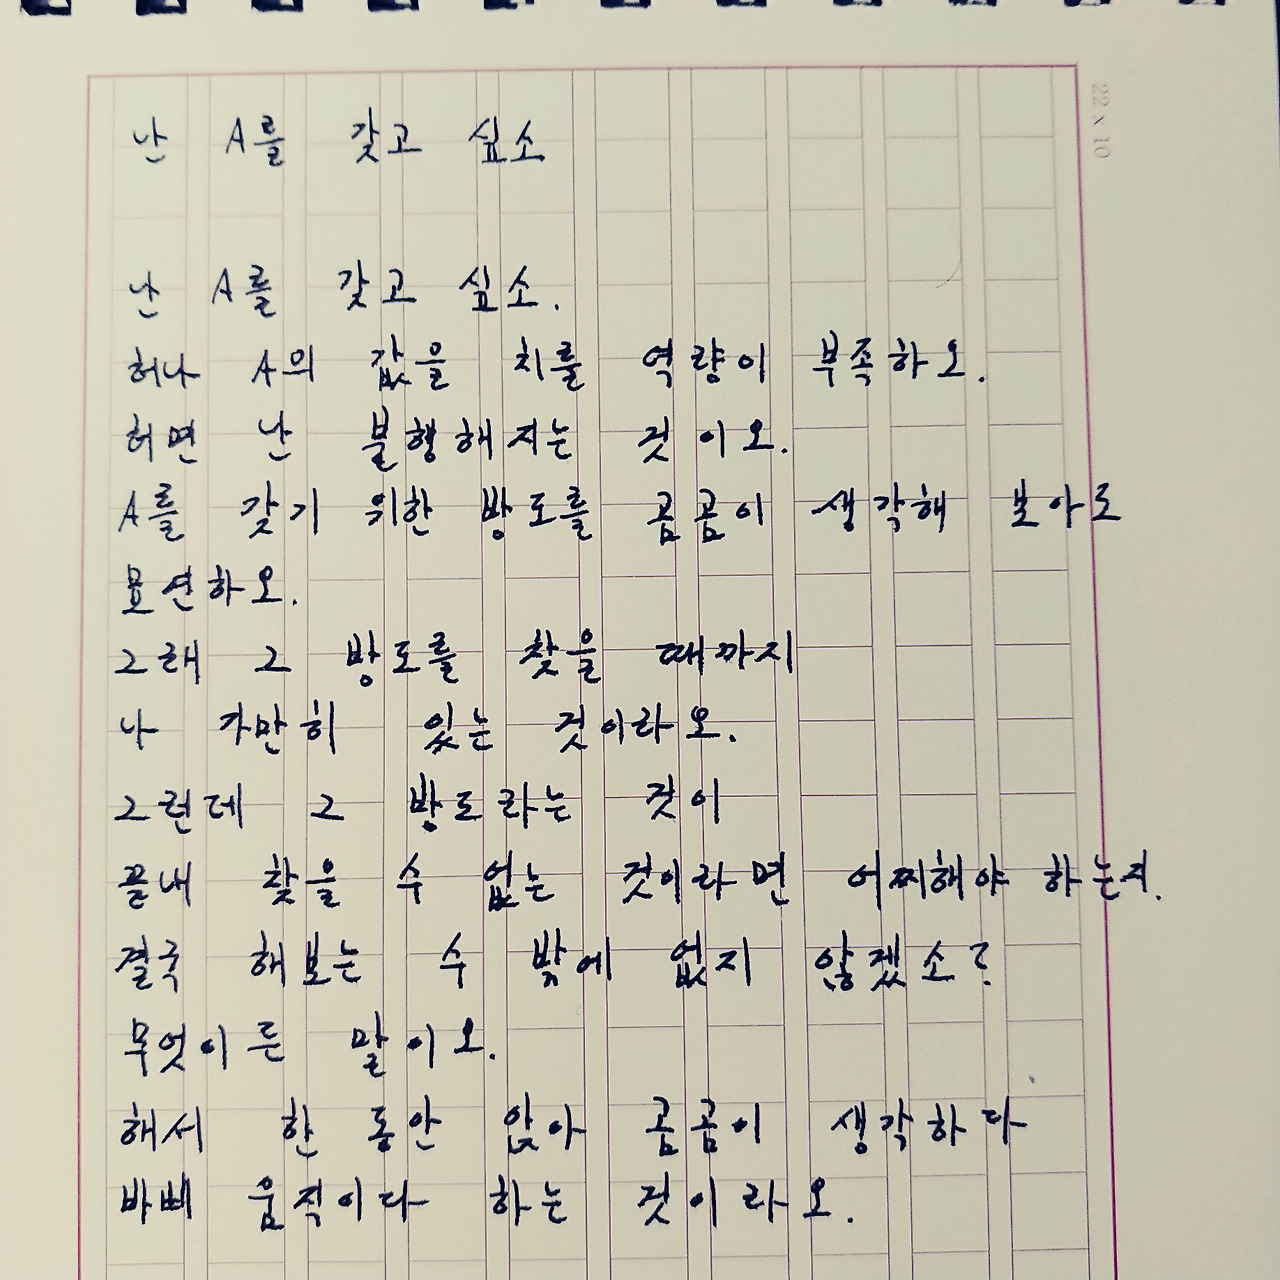 22 x 10
난 A를 갖고 싶소
난 A를 갖고 싶소.
허나 A의 값을 치룰 역량이 부족하오.
허면 난 불행해지는 것이오.
A를 갖기 위한 방도를 곰곰이 생각해 보아도
묘연하오.
그래 그 방도를 찾을 때까지
나 가만히 있는 것이라오.
그런데 그 방도라는 것이
끝내 찾을 수 없는 것이라면 어찌해야 하는지.
결국 해보는 수 밖에 없지 않겠소?
무엇이든 말이오.
해서 한 동안 앉아 곰곰이 생각하다
바삐 움직이다 하는 것이라오.